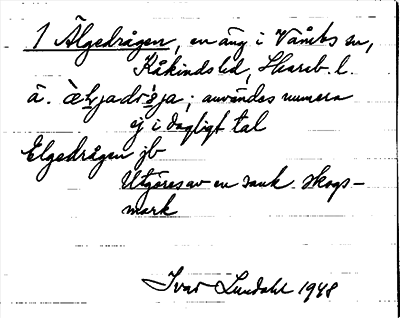 1 Älgedrågen, en äng i Våmbs sn,
Kåkinds hd, Skarab. l.
ä. användes numera
ej i dagligt tal
Elgedrågen jb
Utgöres av en sank skogs-
mark
Ivar Lundahl 1948